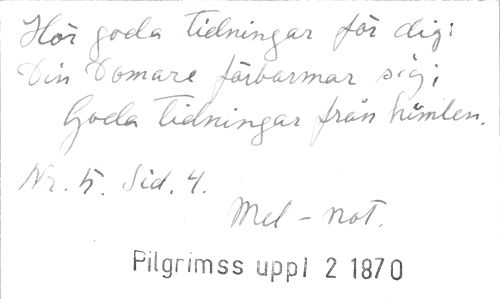 Hör goda tidningar för dig:
Din Domare förbarmar sig;
Goda tidningar från himlen.
Nr. 5. Sid. 4.
Mel-not.
Pilgrimss uppl 2 1870